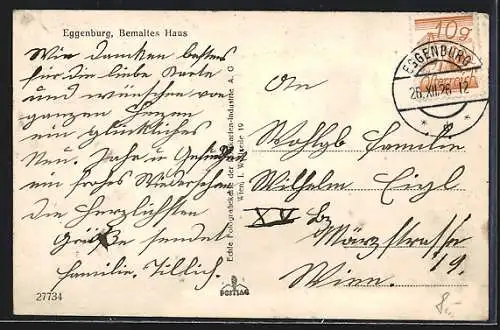 Eggenburg, Bemaltes Haus
Wir danken bestens
für die liebe Karte
und wünschen von
ganzen Herzen
ein glückliches
Neu. Jahr u Gesundheit
ein frohes Wiedersehen
die herzlichsten
Grüße sendet
Familie. Tillich.
27734
Echte Photographiekarte der Postkarten-Industrie A. G.
Wien I. 19
POSTIAG
10g
Österreich
EGGENBURG
26.XII.26 12
An
Wohlgb Familie
Wilhelm Eigl
XV Bz
Märzstrasse
19.
Wien.
8.-